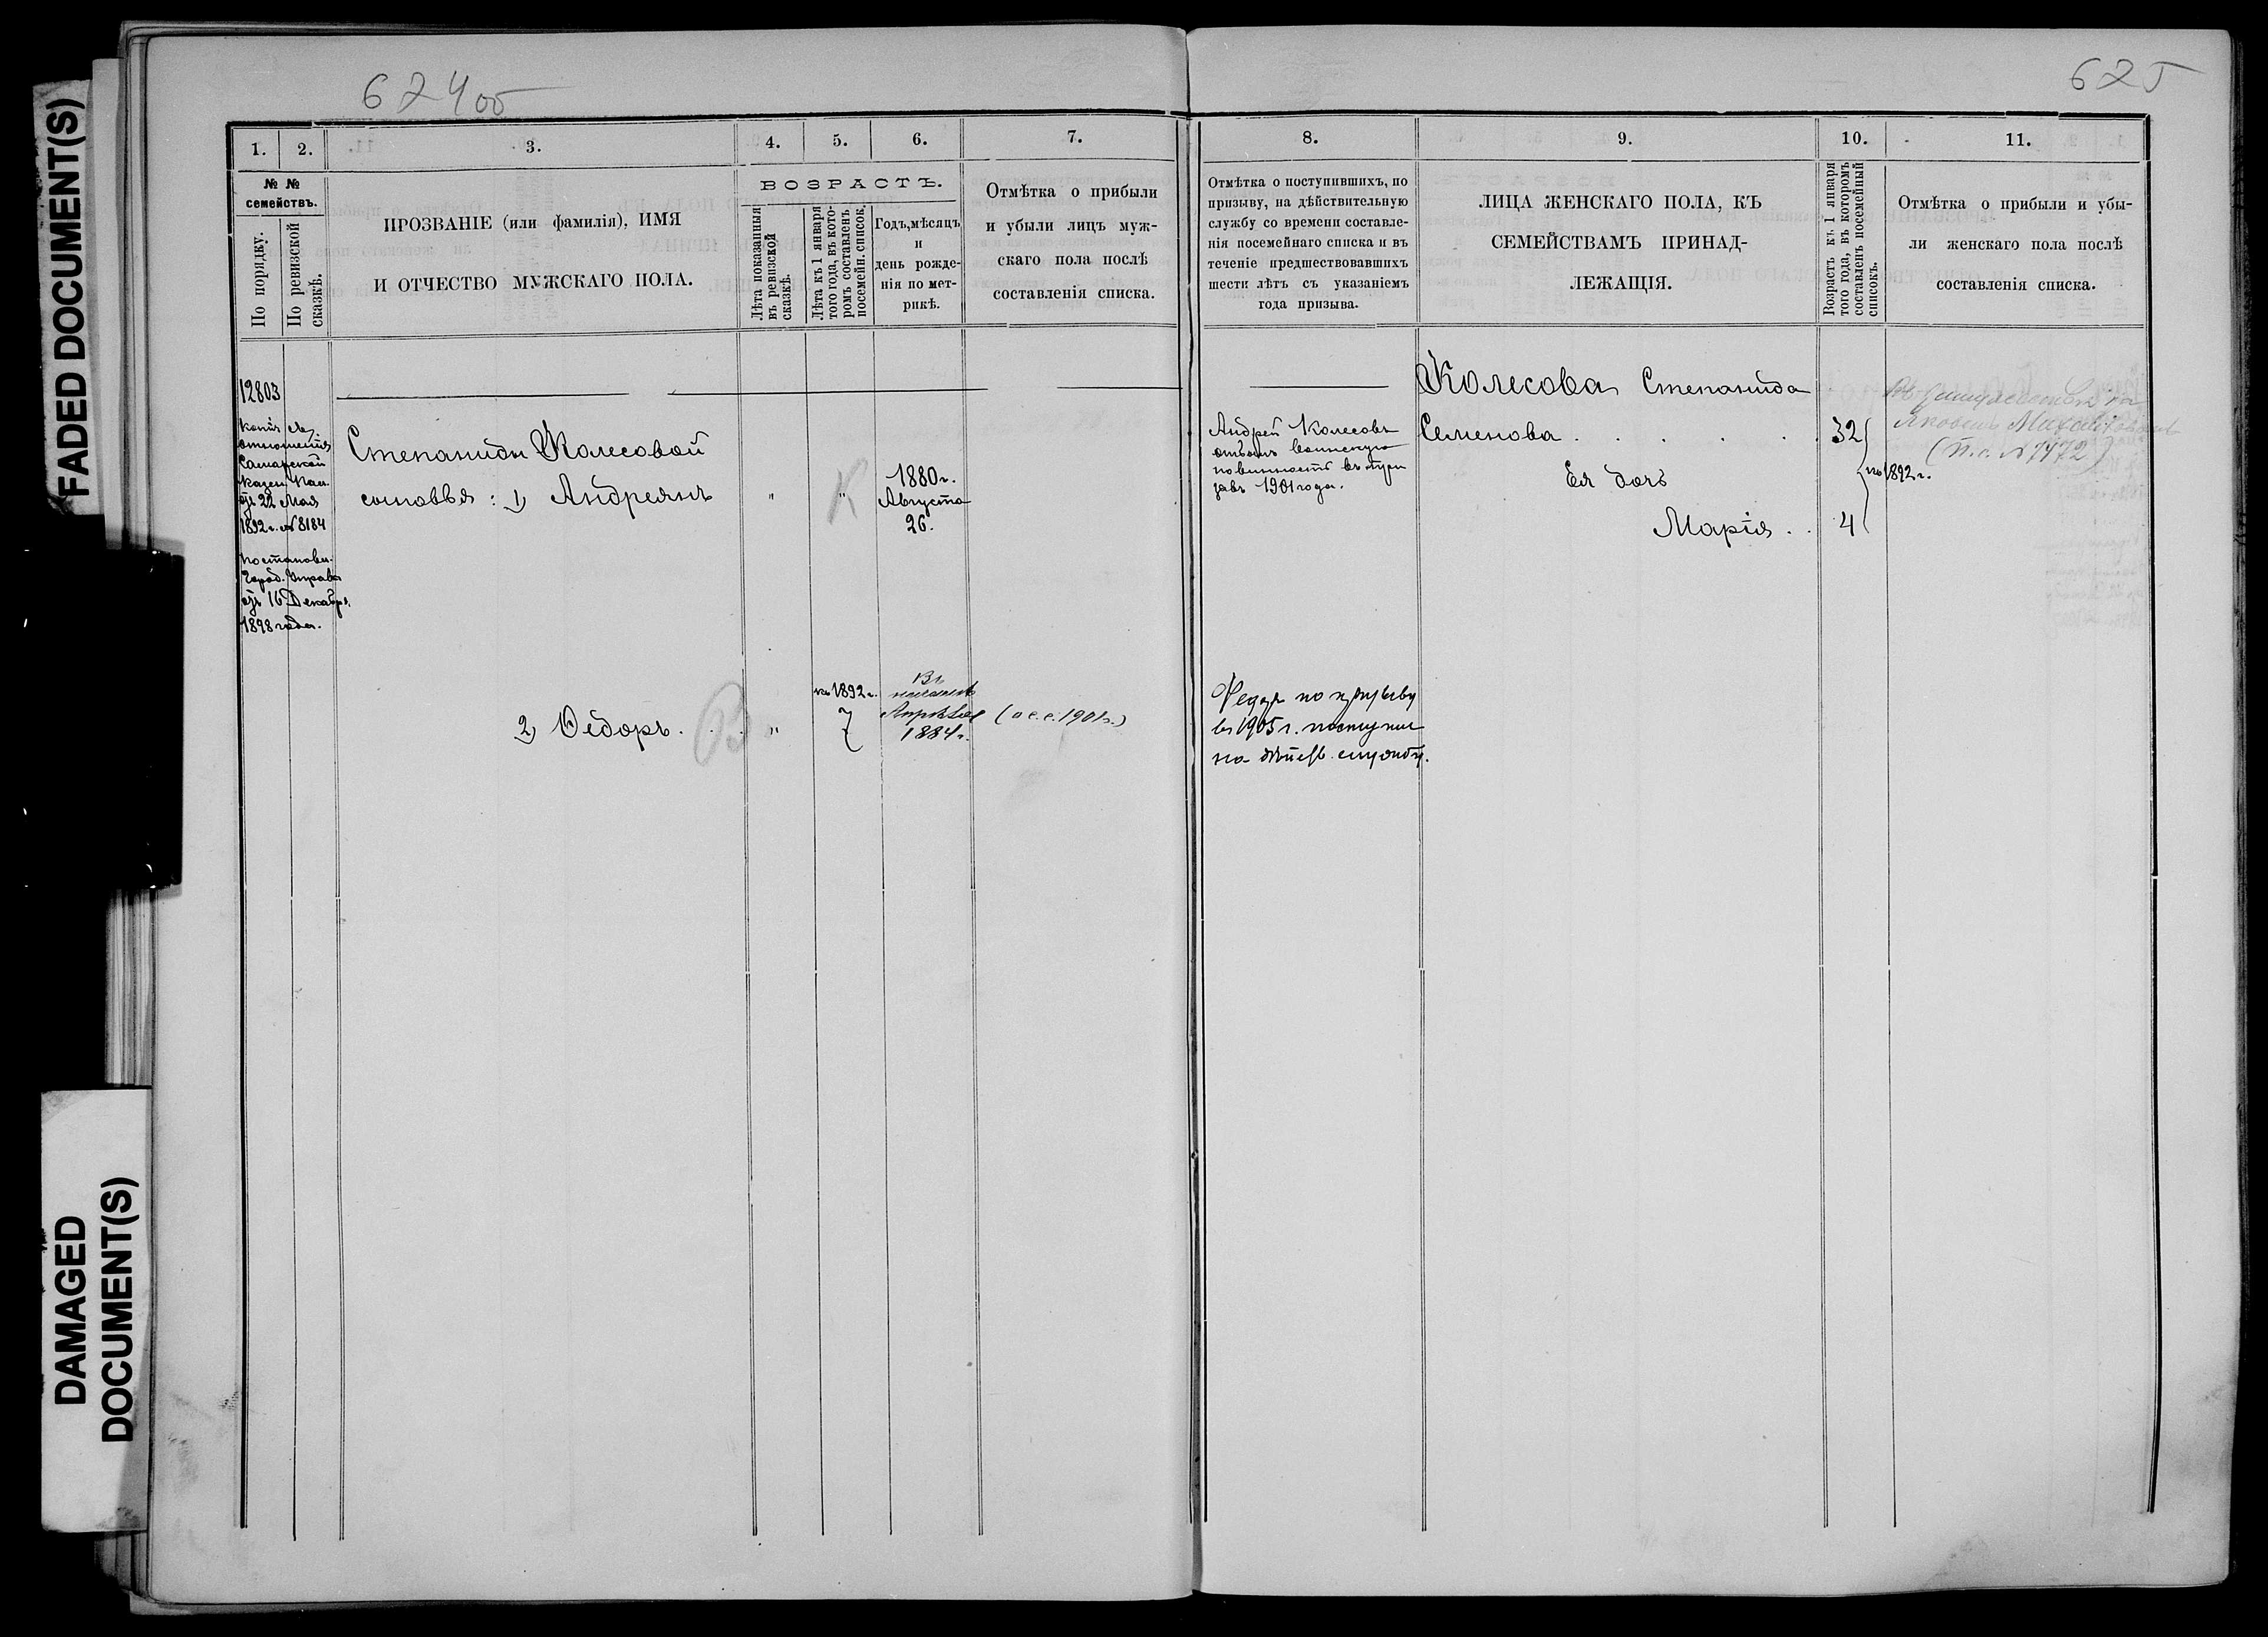 FADED DOCUMENT(S)
DAMAGED
DOCUMENT(S)
624об
1. 2. 3. 4. 5. 6. 7.
№ №
семействъ.
По порядку.
По ревизской
сказкѣ.
ПРОЗВАНІЕ (или фамилія), ИМЯ
И ОТЧЕСТВО МУЖСКАГО ПОЛА.
ВОЗРАСТЪ.
Лѣта показанныя
въ ревизской
сказкѣ.
Лѣта къ 1 января
того года, въ кото-
ромъ составленъ
посемейн. список.
Годъ, мѣсяцъ
и
день рожде-
нія по мет-
рикѣ.
Отмѣтка о прибыли
и убыли лицъ муж-
скаго пола послѣ
составленія списка.
12803
копія съ
отношенія
Самарской
Казен. Пал.
отъ 22 Мая
1892 г. № 8184
Постановл.
Город. Управы
отъ 16 Декабр.
1898 года.
Степаниды Колесовой
сыновья: 1) Андреянъ " К "
1880 г.
Августа
26.
2) Ѳедоръ . . . "
на 1892 г.
7
Въ
Апрѣлѣ
1884 г.
(о с.с. 1901 г.)
625
8. 9. 10. 11.
Отмѣтка о поступившихъ, по
призыву, на дѣйствительную
службу со времени составле-
нія посемейнаго списка и въ
теченіе предшествовавшихъ
шести лѣтъ съ указаніемъ
года призыва.
ЛИЦА ЖЕНСКАГО ПОЛА, КЪ
СЕМЕЙСТВАМЪ ПРИНАД-
ЛЕЖАЩІЯ.
Возрастъ къ 1 января
того года, въ которомъ
составленъ посемейный
списокъ.
Отмѣтка о прибыли и убы-
ли женскаго пола послѣ
составленія списка.
Андрей Колесовъ
отбылъ воинскую
повинность въ при
зывъ 1901 года.
Федоръ по призыву
въ 1905 г. поступил
на дѣйств. службу.
Колесова Степанида
Семенова . . . . . 32
Ея дочь
Марія . . 4
на 1892 г.
Яковомъ
(п.с. № 7472)